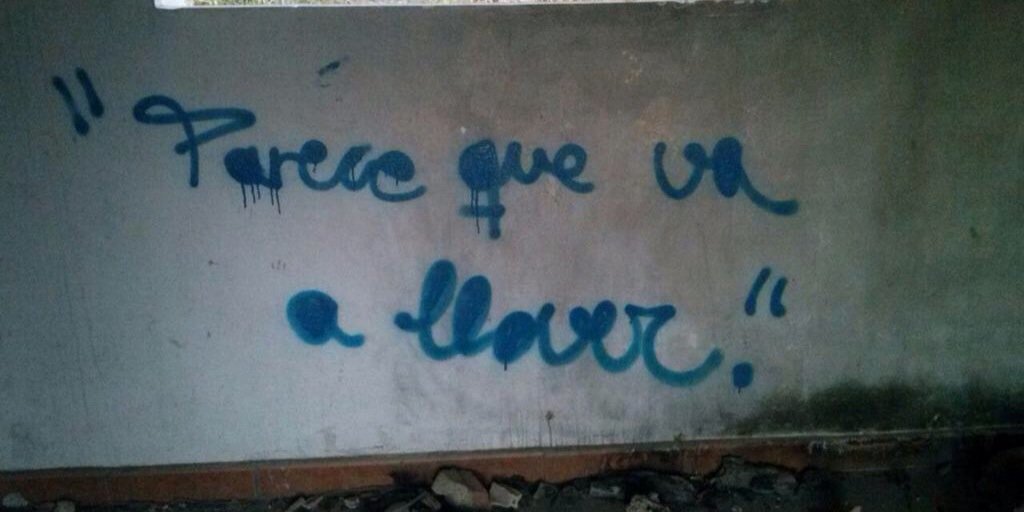 "Parece que va
a llover."